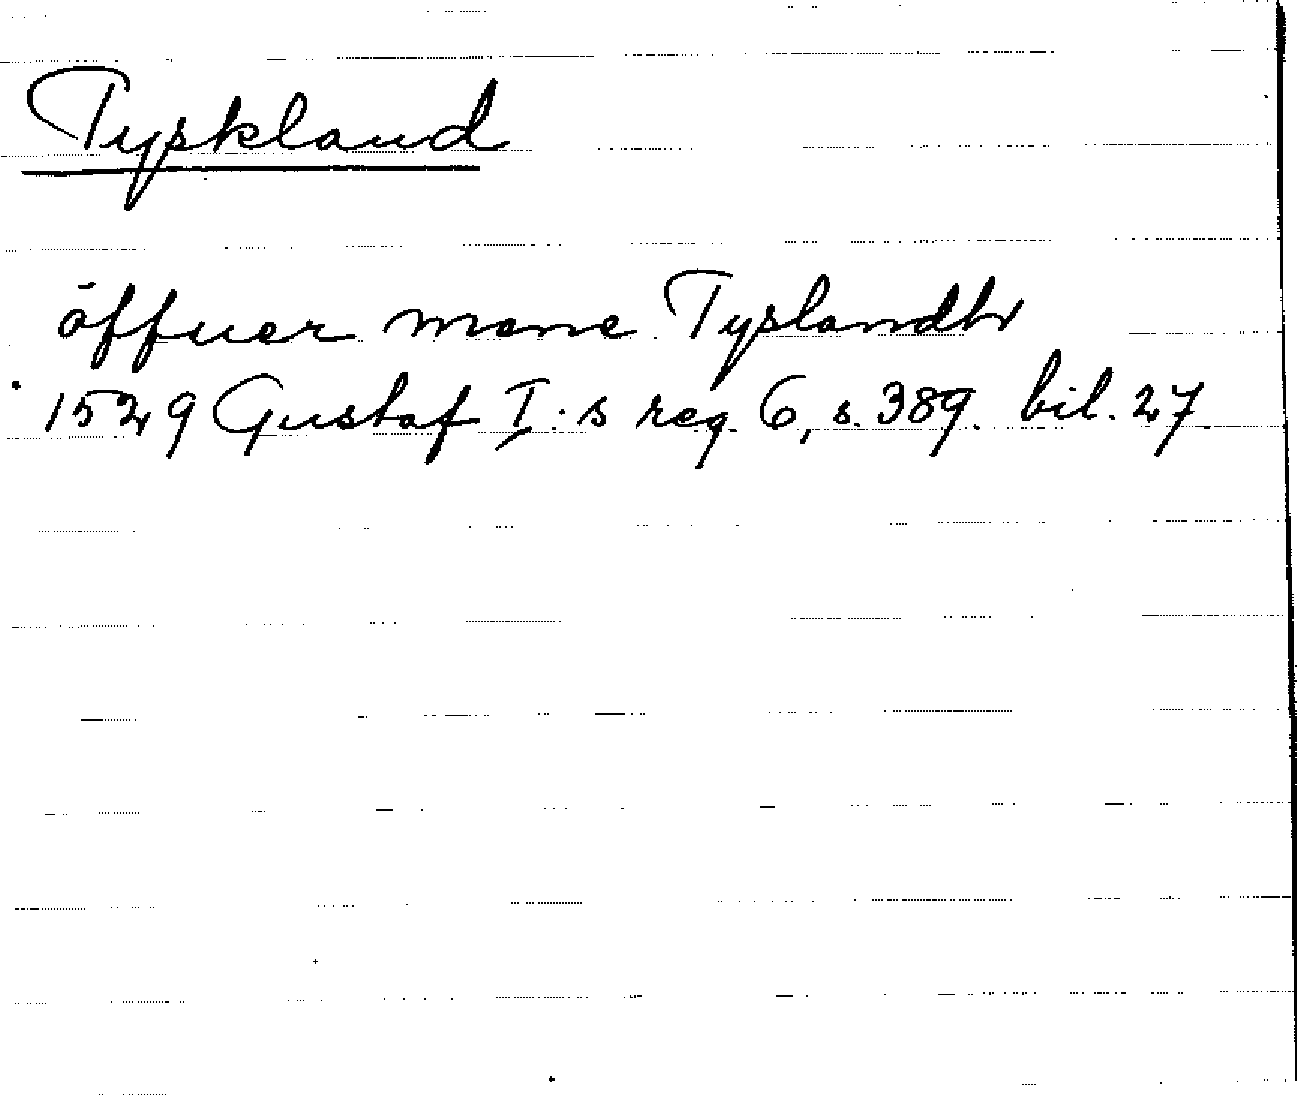 Tyskland
öffuer mane Tyslandh
1529 Gustaf I:s reg. 6, s. 389. bil. 27